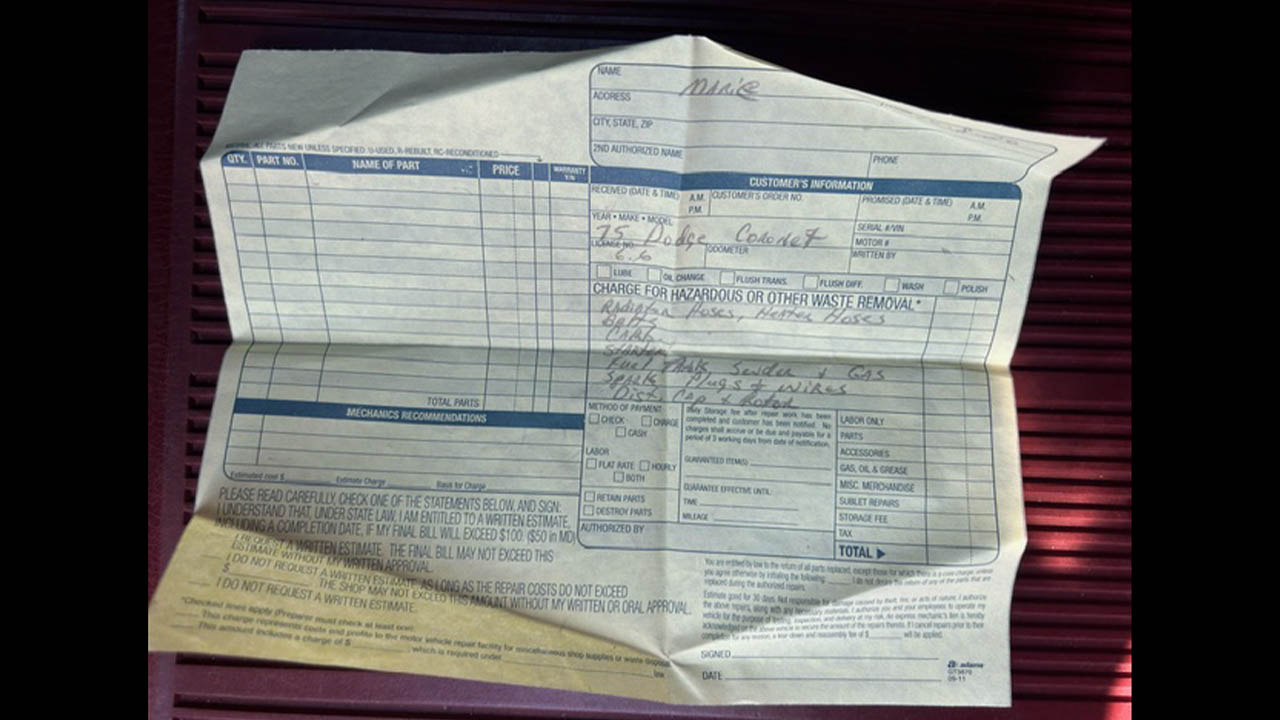 NAME
Marie
ADDRESS
CITY, STATE, ZIP
2ND AUTHORIZED NAME
PHONE
ALL PARTS NEW UNLESS SPECIFIED: U-USED, R-REBUILT, RC-RECONDITIONED
QTY. PART NO. NAME OF PART PRICE WARRANTY Y/N
CUSTOMER'S INFORMATION
RECEIVED (DATE & TIME) A.M. P.M. CUSTOMER'S ORDER NO. PROMISED (DATE & TIME) A.M. P.M.
YEAR • MAKE • MODEL
75 Dodge Coronet
SERIAL #/VIN
MOTOR #
LICENSE NO. ODOMETER WRITTEN BY
6.6
LUBE OIL CHANGE FLUSH TRANS. FLUSH DIFF. WASH POLISH
CHARGE FOR HAZARDOUS OR OTHER WASTE REMOVAL*
Radiator Hoses, Heater Hoses
Belts
Carb.
Starter
Fuel Tank, Sender & Gas
Spark Plugs & Wires
Dist. Cap & Rotor
TOTAL PARTS
MECHANICS RECOMMENDATIONS
Estimated cost $ Estimate Charge Basis for Charge
METHOD OF PAYMENT
CHECK CHARGE
CASH
LABOR
FLAT RATE HOURLY
BOTH
RETAIN PARTS
DESTROY PARTS
AUTHORIZED BY
Daily Storage fee after repair work has been
completed and customer has been notified. No
charges shall accrue or be due and payable for a
period of 3 working days from date of notification.
GUARANTEED ITEM(S)
GUARANTEE EFFECTIVE UNTIL:
TIME
MILEAGE
LABOR ONLY
PARTS
ACCESSORIES
GAS, OIL & GREASE
MISC. MERCHANDISE
SUBLET REPAIRS
STORAGE FEE
TAX
TOTAL ▶
PLEASE READ CAREFULLY, CHECK ONE OF THE STATEMENTS BELOW, AND SIGN:
I UNDERSTAND THAT, UNDER STATE LAW, I AM ENTITLED TO A WRITTEN ESTIMATE,
INCLUDING A COMPLETION DATE, IF MY FINAL BILL WILL EXCEED $100. ($50 in MD)
I REQUEST A WRITTEN ESTIMATE. THE FINAL BILL MAY NOT EXCEED THIS
ESTIMATE WITHOUT MY WRITTEN APPROVAL.
I DO NOT REQUEST A WRITTEN ESTIMATE, AS LONG AS THE REPAIR COSTS DO NOT EXCEED
$ THE SHOP MAY NOT EXCEED THIS AMOUNT WITHOUT MY WRITTEN OR ORAL APPROVAL.
I DO NOT REQUEST A WRITTEN ESTIMATE.
*Checked lines apply (Preparer must check at least one):
This charge represents costs and profits to the motor vehicle repair facility for miscellaneous shop supplies or waste disposal.
This amount includes a charge of $ which is required under law.
You are entitled by law to the return of all parts replaced, except those for which there is a core charge, unless
you agree otherwise by initialing the following: I do not desire the return of any of the parts that are
replaced during the authorized repairs.
Estimate good for 30 days. Not responsible for damage caused by theft, fire, or acts of nature. I authorize
the above repairs, along with any necessary materials. I authorize you and your employees to operate my
vehicle for the purpose of testing, inspection, and delivery at my risk. An express mechanic's lien is hereby
acknowledged on the above vehicle to secure the amount of the repairs thereto. If I cancel repairs prior to their
completion for any reason, a tear-down and reassembly fee of $ will be applied.
SIGNED
DATE
adams
GT3870
09-11